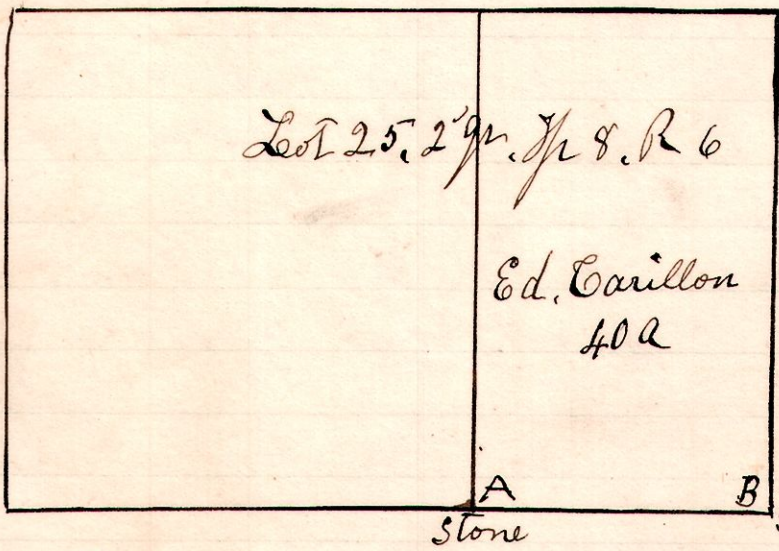 Lot 25, 2 qr. Tp 8. R 6
Ed. Carillon
40 a
A
B
Stone